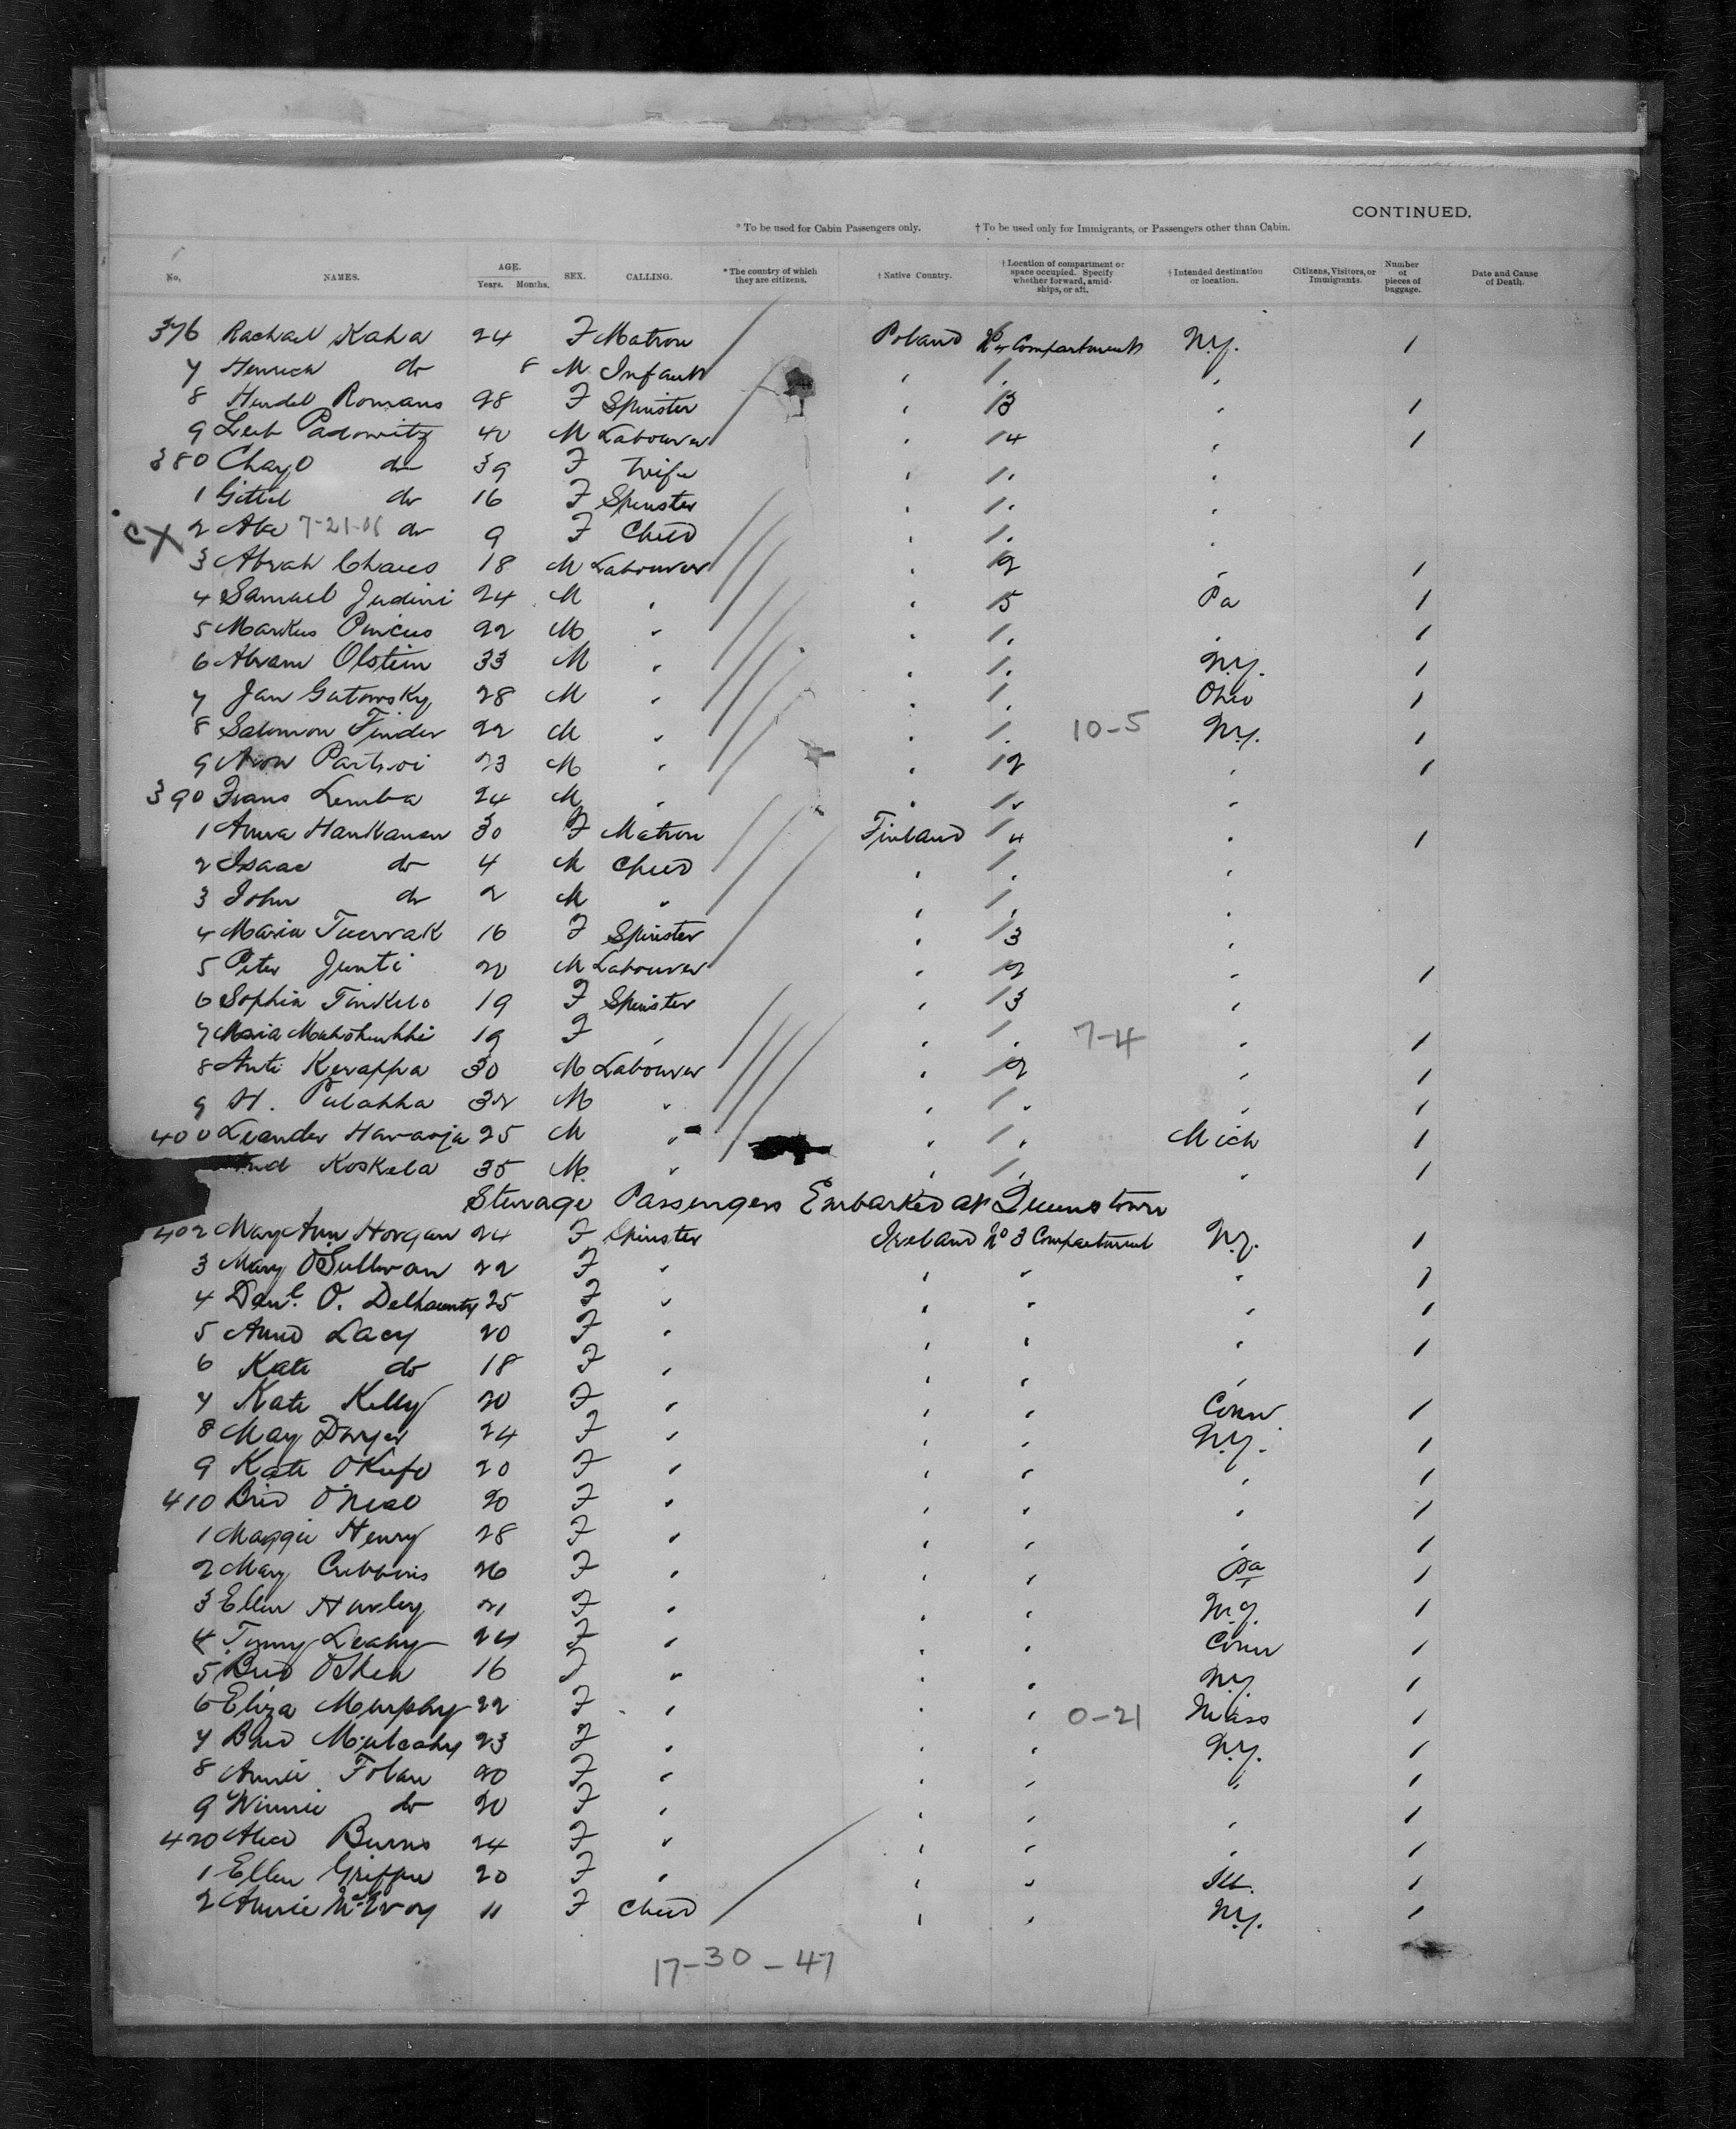 CONTINUED.
* To be used for Cabin Passengers only. † To be used only for Immigrants, or Passengers other than Cabin.
No. NAMES. AGE. Years. Months. SEX. CALLING. * The country of which they are citizens. † Native Country. † Location of compartment or space occupied. Specify whether forward, amid-ships, or aft. † Intended destination or location. Citizens, Visitors, or Immigrants. Number of pieces of baggage. Date and Cause of Death.
376 Rachael Kaha 24 F Matron Poland No 4 Compartment N.Y. 1
7 Henrich do 8 M Infant
8 Hendel Romans 28 F Spinster 3 1
9 Leib Padowitz 40 M Labourer 4 1
380 Chay do 39 F Wife
1 Gittel do 16 F Spinster
CX 2 Abe 7-21-06 do 9 F Child
3 Abrah Chaies 18 M Labourer 2 1
4 Samuel Judini 24 M 5 Pa 1
5 Markus Pincus 22 M 1
6 Abram Olstein 33 M N.Y. 1
7 Jan Gutowsky 28 M Ohio 1
8 Salomon Finder 22 M 10-5 N.Y. 1
9 Aron 23 M 2 1
390 Frans Lemba 24 M
1 Anna Hankanen 30 F Matron Finland 4 1
2 Isaac do 4 M Child
3 John do 2 M
4 Maria 16 F Spinster 3
5 Peter Junti 20 M Labourer 2 1
6 Sophia Tinkelo 19 F Spinster 3
7 Maria 19 F 7-4 1
8 Anti Kerappa 30 M Labourer 2 1
9 H. Pulahha 32 M 1
400 Leander Havaoja 25 M Mich 1
Koskela 35 M 1
Steerage Passengers Embarked at Queenstown
402 Mary Ann Horgan 24 F Spinster Ireland No 3 Compartment N.Y. 1
3 Mary O'Sullivan 22 F 1
4 Danl. O. Delhaunty 25 F 1
5 Annd Lacy 20 F 1
6 Kate do 18 F
7 Kate Kelly 20 F Conn 1
8 May Dwyer 24 F N.Y. 1
9 Kate O'Kefe 20 F 1
410 Brid O'Neal 20 F 1
1 Maggie Henry 28 F 1
2 Mary Cribbins 26 F Pa 1
3 Ellen Hurley 21 F N.Y. 1
4 Leahy 24 F Conn 1
5 Brid O'Shea 16 F N.Y. 1
6 Eliza Murphy 22 F 0-21 Mass 1
7 Brid Mulcahy 23 F N.Y. 1
8 Annie Folan 20 F 1
9 Winnie do 20 F 1
420 Alice Burns 24 F 1
1 Ellen Griffin 20 F Ill. 1
2 Annie McEvoy 11 F Child N.Y. 1
17-30-47